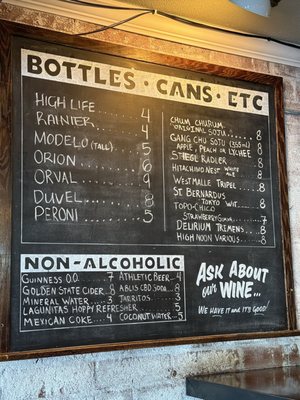 BOTTLES · CANS · ETC
HIGH LIFE 4
RAINIER 4
MODELO (TALL) 5
ORION 6
ORVAL 9
DUVEL 8
PERONI 5
CHUM CHURUM
ORIGINAL SOJU 8
GANG CHU SOJU (355ml)
APPLE, PEACH OR LYCHEE 8
STIEGL RADLER 8
HITACHINO NEST WHITE ALE 8
WESTMALLE TRIPEL 8
ST BERNARDUS
TOKYO WIT 8
TOPO-CHICO
STRAWBERRY GUAVA 7
DELIRIUM TREMENS 8
HIGH NOON VARIOUS 8
NON-ALCOHOLIC
GUINNESS 0.0 7
GOLDEN STATE CIDER 8
MINERAL WATER 3
LAGUNITAS HOPPY REFRESHER 5
MEXICAN COKE 4
ATHLETIC BEER 4
ABLIS CBD SODA 8
JARRITOS 3
COCONUT WATER 5
ASK ABOUT
our WINE...
WE HAVE IT and IT'S GOOD!